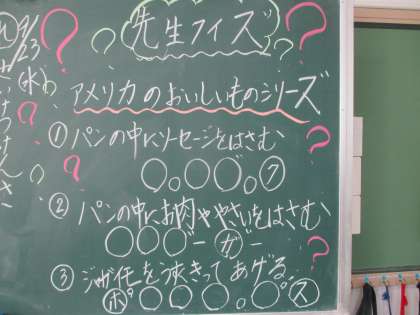 9/23
(水)
先生クイズ
アメリカのおいしいものシリーズ
① パンの中にソーセージをはさむ
○。○○。ク
② パンの中にお肉ややさいをはさむ
○○○ーガー
③ ジャガ芋をうすきってあげる
ホ°○○○○°ス